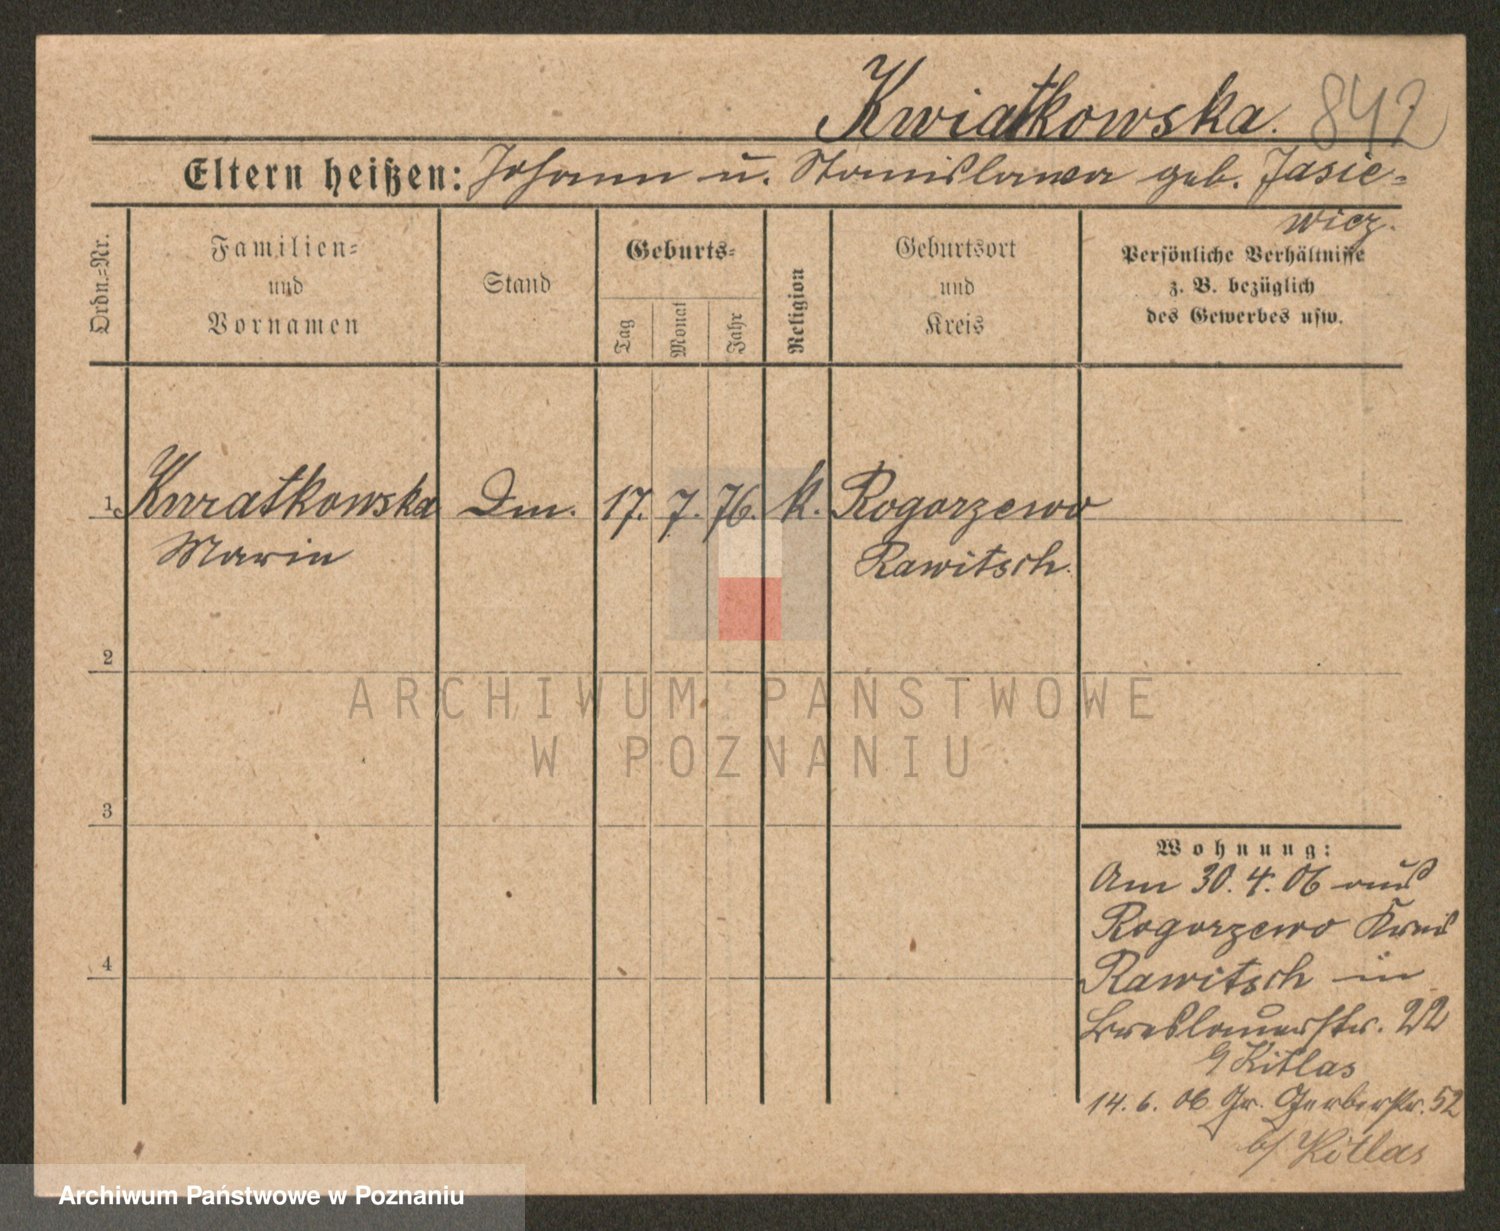 Kwiatkowska. 842
Eltern heißen: Johann u. Stanislawa geb. Jasie=
wicz.
Ordn.=Nr.
Familien=
und
Vornamen
Stand
Geburts=
Tag
Monat
Jahr
Religion
Geburtsort
und
Kreis
Persönliche Verhältnisse
z. B. bezüglich
des Gewerbes usw.
1 Kwiatkowska Dm. 17. 7. 76. k. Rogorzewo
Marie Rawitsch.
2
3
4
ARCHIWUM PAŃSTWOWE
W POZNANIU
Wohnung:
Am 30. 4. 06 aus
Rogorzewo Kreis
Rawitsch in
Breslauerstr. 22
Kitlas
14. 6. 06 Gr. Gerberstr. 52
b/ Kitlas
Archiwum Państwowe w Poznaniu